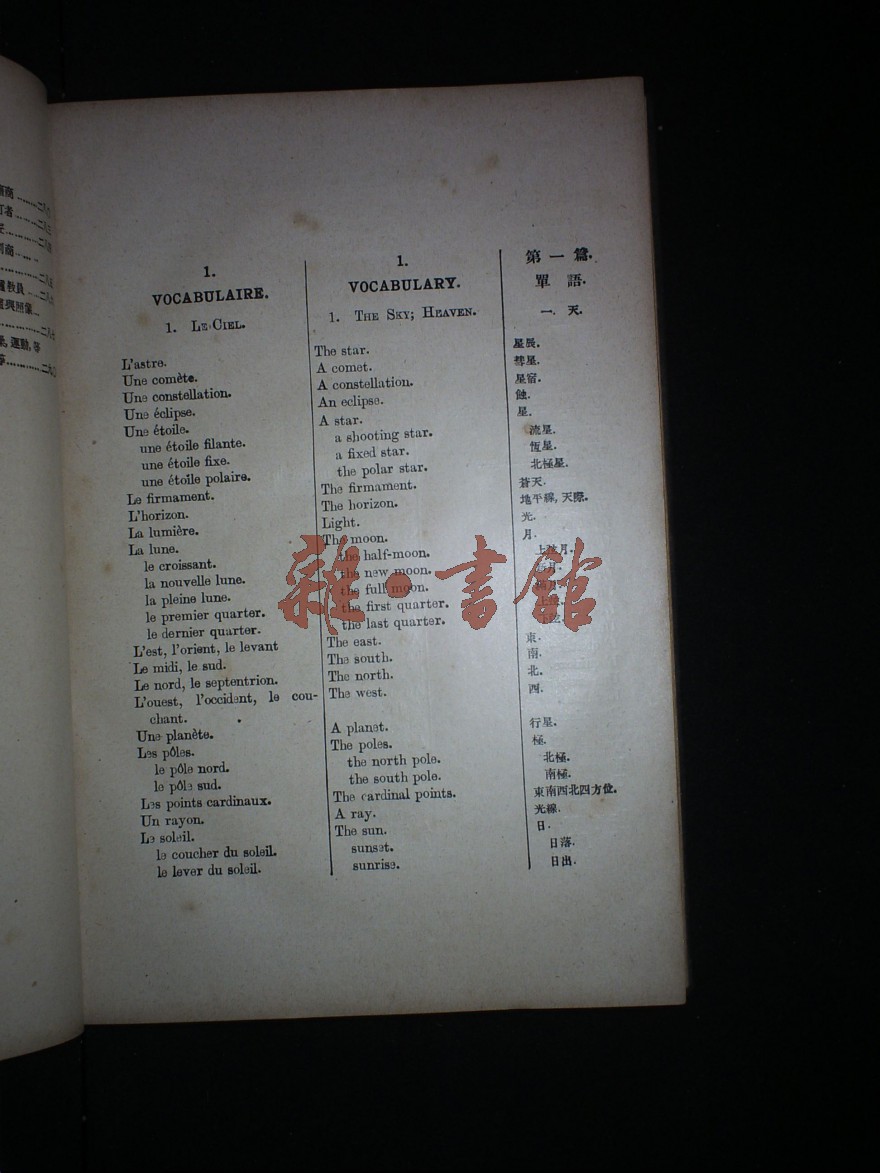 1.
VOCABULAIRE.
1. LE CIEL.
L'astre.
Une comète.
Une constellation.
Une éclipse.
Une étoile.
une étoile filante.
une étoile fixe.
une étoile polaire.
Le firmament.
L'horizon.
La lumière.
La lune.
le croissant.
la nouvelle lune.
la pleine lune.
le premier quarter.
le dernier quarter.
L'est, l'orient, le levant
Le midi, le sud.
Le nord, le septentrion.
L'ouest, l'occident, le cou-
chant.
Une planète.
Les pôles.
le pôle nord.
le pôle sud.
Les points cardinaux.
Un rayon.
Le soleil.
le coucher du soleil.
le lever du soleil.
1.
VOCABULARY.
1. THE SKY; HEAVEN.
The star.
A comet.
A constellation.
An eclipse.
A star.
a shooting star.
a fixed star.
the polar star.
The firmament.
The horizon.
Light.
The moon.
the half-moon.
the new moon.
the full moon.
the first quarter.
the last quarter.
The east.
The south.
The north.
The west.
A planet.
The poles.
the north pole.
the south pole.
The cardinal points.
A ray.
The sun.
sunset.
sunrise.
第一篇.
單語.
一. 天.
星辰.
彗星.
星宿.
蝕.
星.
流星.
恆星.
北極星.
蒼天.
地平線, 天際.
光.
月.
上弦月.
東.
南.
北.
西.
行星.
極.
北極.
南極.
東南西北四方位.
光線.
日.
日落.
日出.
雜·書館